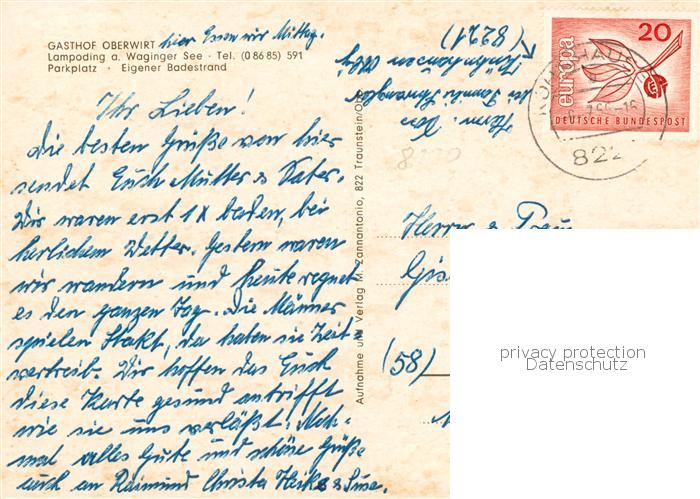 GASTHOF OBERWIRT hier Essen wir Mittag.
Lampoding a. Waginger See · Tel. (0 86 85) 591
Parkplatz · Eigener Badestrand
Ihr Lieben!
Die besten Grüße von hier
sendet Euch Mutter & Vater.
Wir waren erst 1 x baden, bei
herlichem Wetter. Gestern waren
wir wandern und heute regnet
es den ganzen Tag. Die Männer
spielen Skakt, da haben sie Zeit=
vertreib. Wir hoffen das Euch
diese Karte gesund antrifft
wie sie uns verläßt. Noch-
mal alles Gute und schöne Grüße
auch an Raimund Christa Heike & Suse.
Aufnahme und Verlag M. Zannantonio, 822 Traunstein/Obb.
(8221)
europa
20
DEUTSCHE BUNDESPOST
822
Herrn & Frau
(58)
privacy protection
Datenschutz